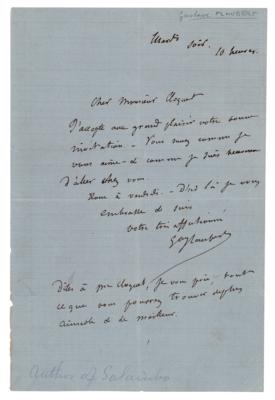 Gustave FLAUBERT
Mardi soir.
10 heures.
Cher Monsieur Cloquet
J'accepte avec grand plaisir votre bonne
invitation. - Vous savez comme je
vous aime - et comme je suis heureux
d'aller chez vous
Donc à vendredi. - D'ici là je vous
embrasse & suis
votre très affectionné
G Flaubert
Dites à Mme Cloquet, je vous prie, tout
ce que vous pourrez trouver de plus
aimable & de meilleur.
Author of Salambo